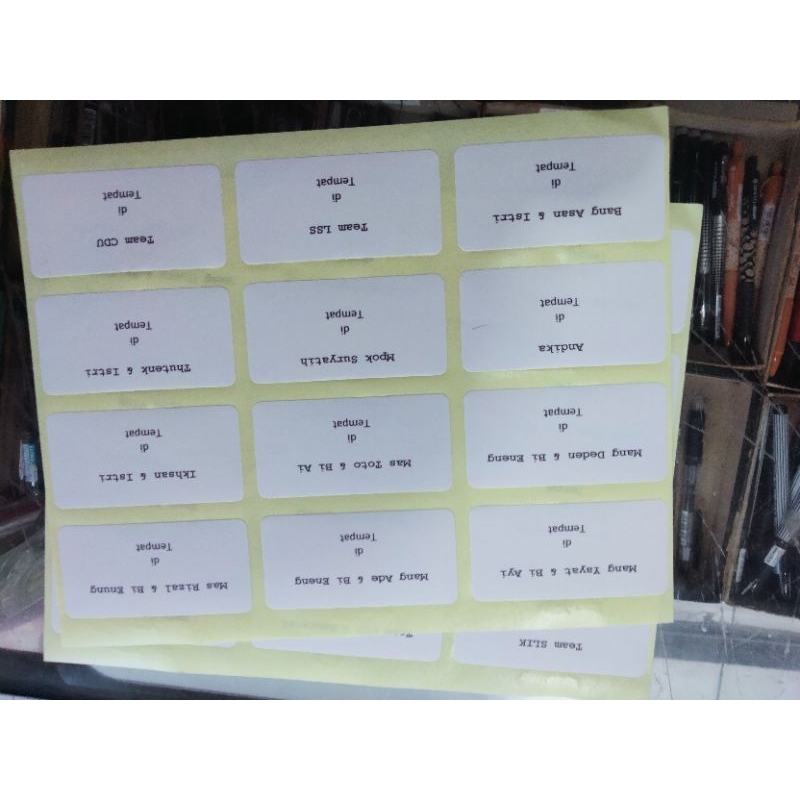 Team SLIK
Mang Yayat & Bi Ayi
di
Tempat
Mang Ade & Bi Eneng
di
Tempat
Mas Rizal & Bi Enung
di
Tempat
Mang Deden & Bi Eneng
di
Tempat
Mas Toto & Bi Ai
di
Tempat
Ikhsan & Istri
di
Tempat
Andika
di
Tempat
Mpok Suryatih
di
Tempat
Thutenk & Istri
di
Tempat
Bang Asan & Istri
di
Tempat
Team LSS
di
Tempat
Team CDU
di
Tempat